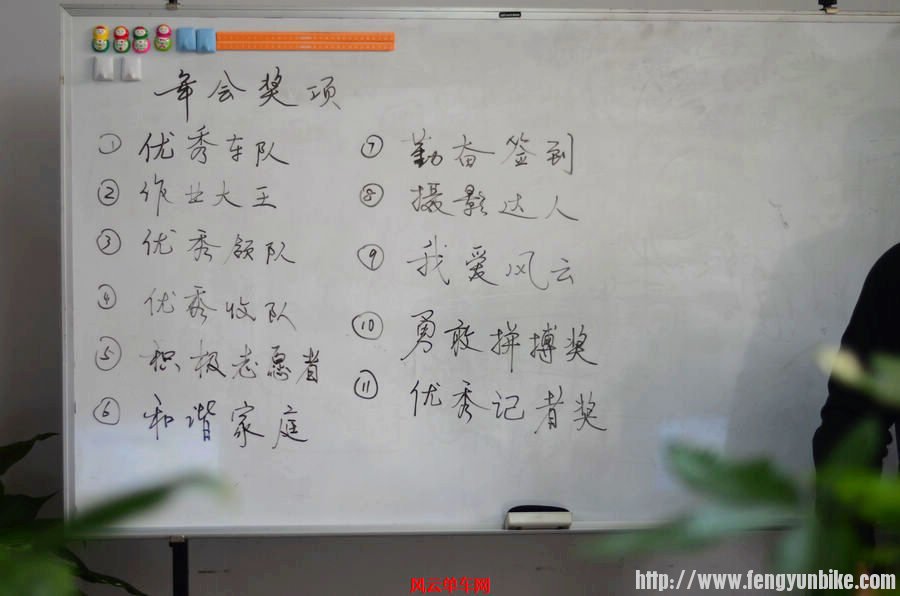 年会奖项
① 优秀车队
② 作业大王
③ 优秀领队
④ 优秀收队
⑤ 积极志愿者
⑥ 和谐家庭
⑦ 勤奋签到
⑧ 摄影达人
⑨ 我爱风云
⑩ 勇敢拼搏奖
⑪ 优秀记者奖
风云单车网
http://www.fengyunbike.com